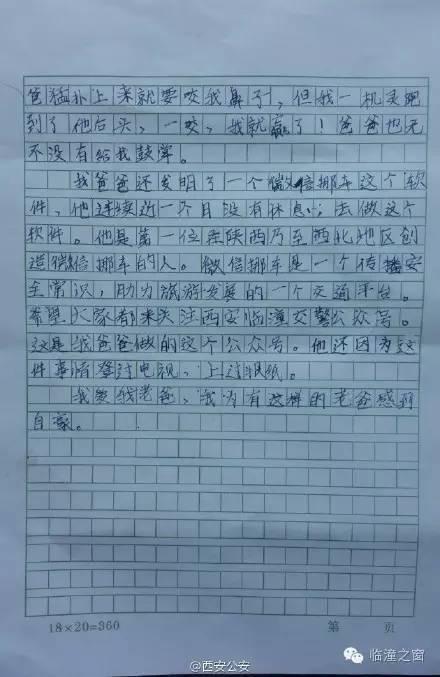 爸猛扑上来就要咬我鼻子，但我一机灵跑
到了他后头，一咬，我就赢了！爸爸也无
不没有给我鼓掌。
我爸爸还发明了一个微信挪车这个软
件，他连续近一个月没有休息，去做这个
软件。他是第一位在陕西乃至西北地区创
造微信挪车的人。微信挪车是一个传播安
全常识，助力旅游发展的一个交通平台。
希望大家都来关注西安临潼交警公众号。
这是我爸爸做的这个公众号。他还因为这
件事情登过电视，上过报纸。
我爱我老爸，我为有这样的老爸感到
自豪。
18×20=360
第 页
@西安公安
临潼之窗